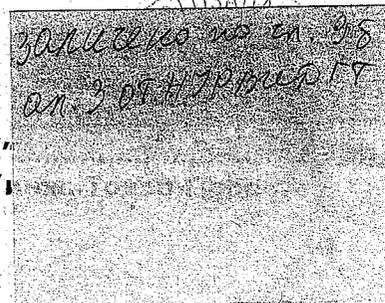 Заличено по чл. 36
ал. 3 от НУРВИДГТ